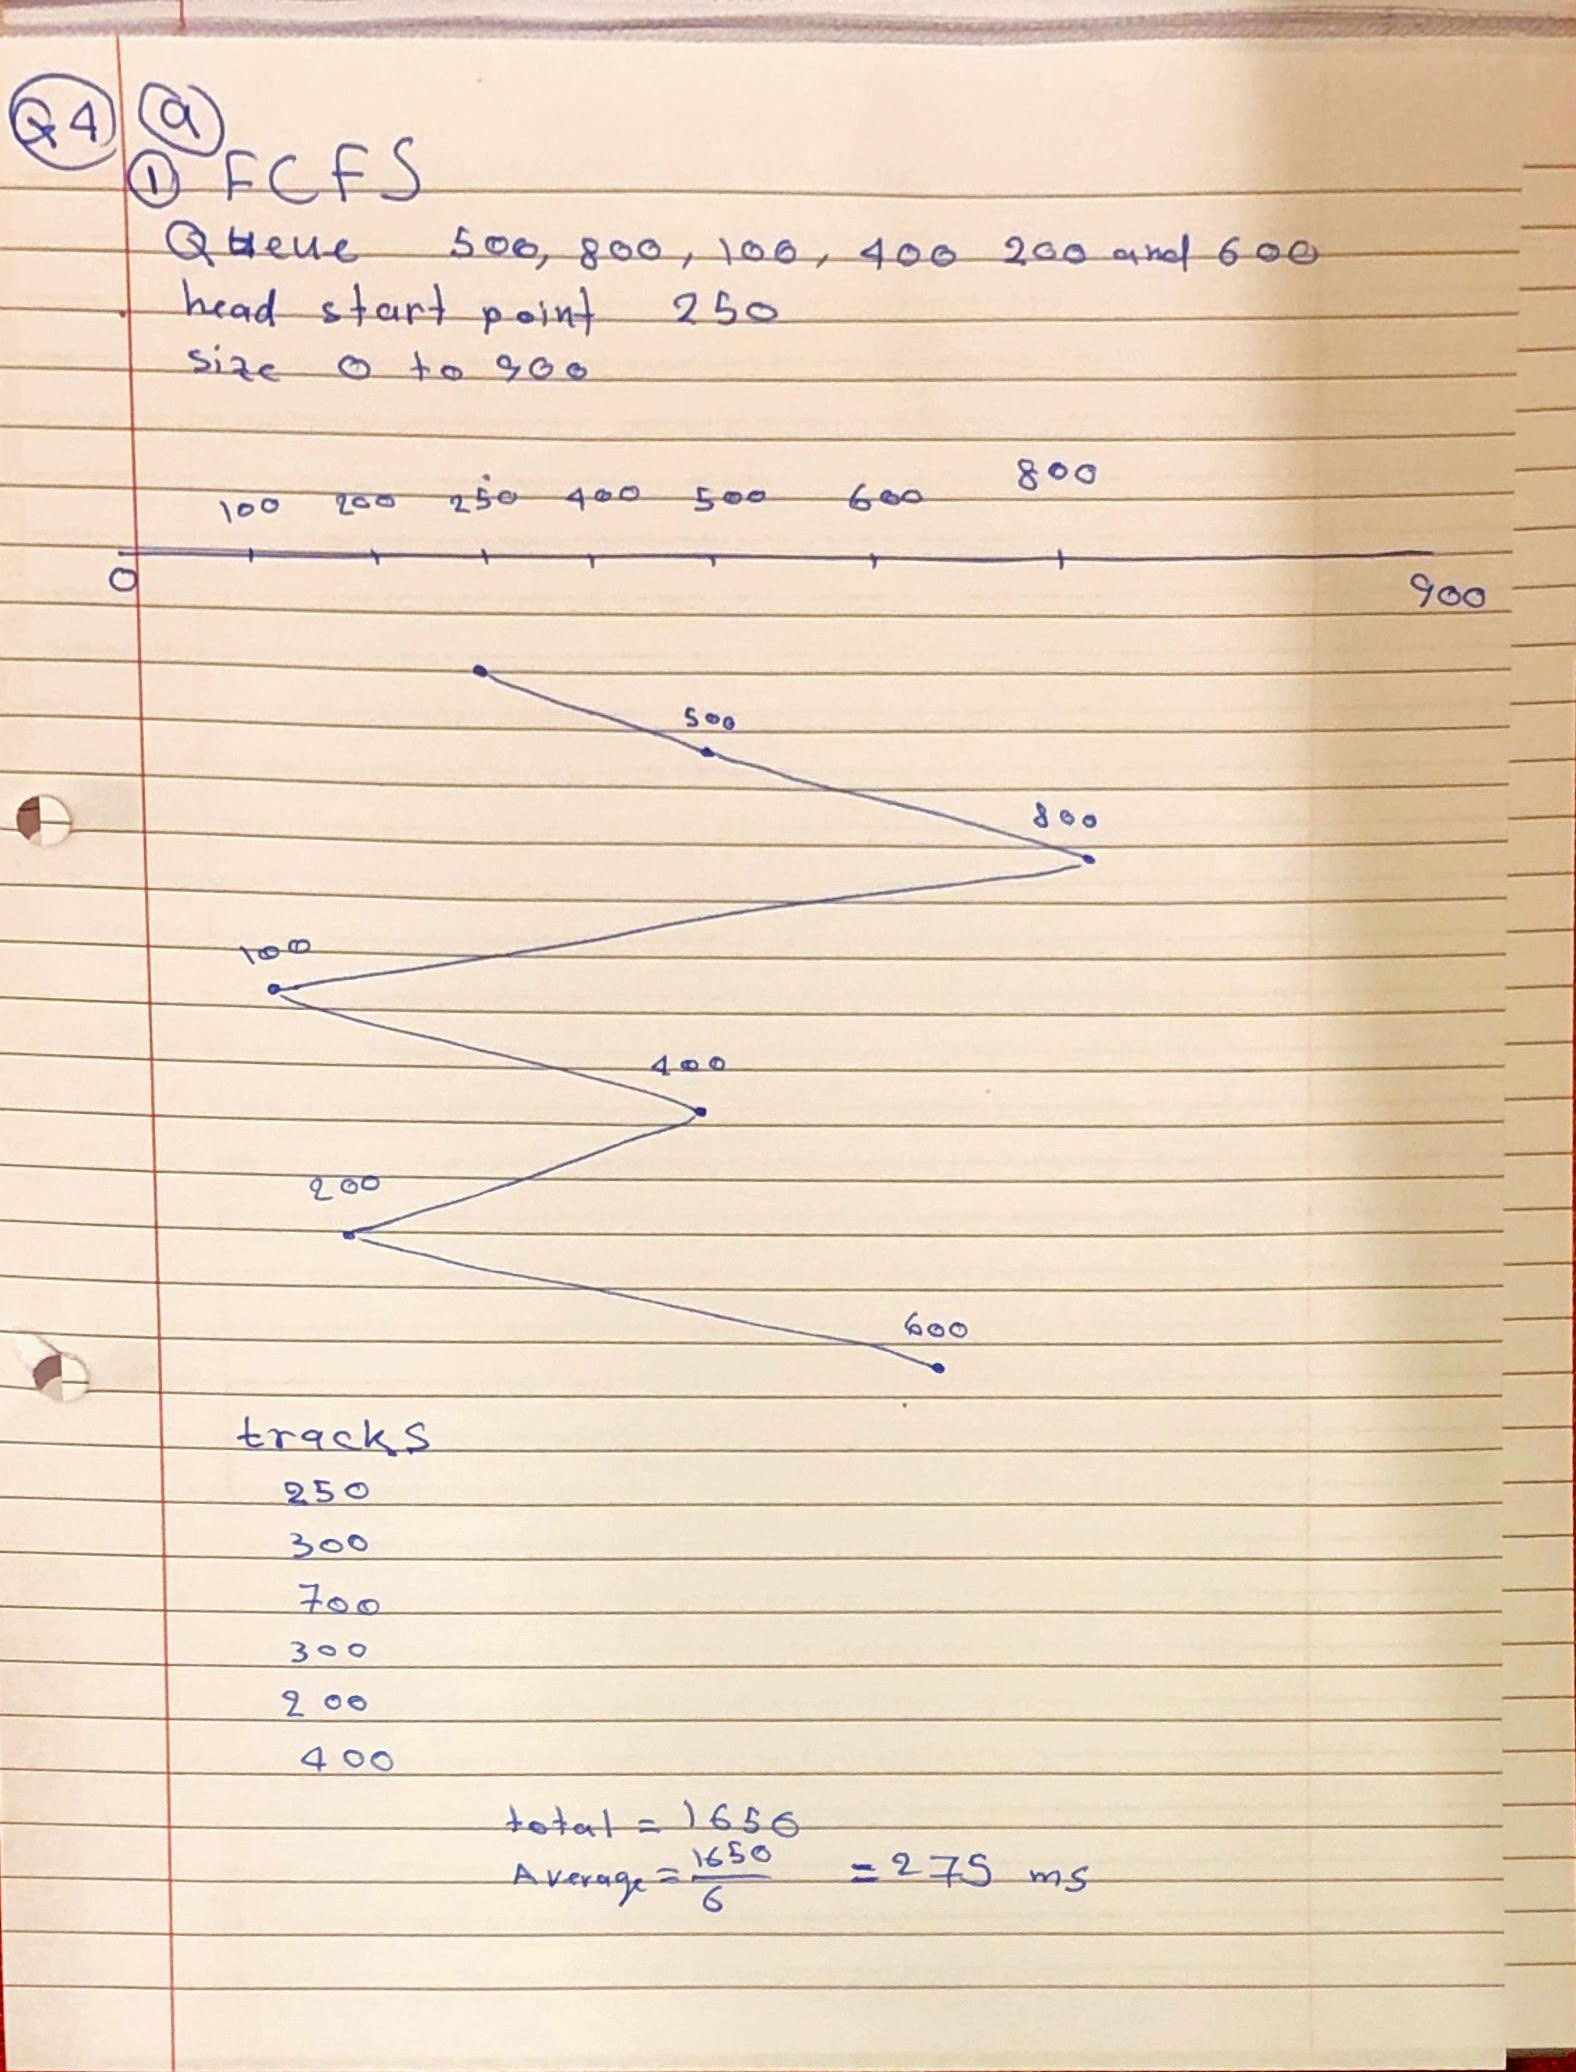 Q4 a
1 FCFS
Queue 500, 800, 100, 400 200 and 600
head start point 250
size 0 to 900
100 200 250 400 500 600 800
0 900
500
800
100
400
200
600
tracks
250
300
700
300
200
400
total = 1650
Average = 1650/6 = 275 ms